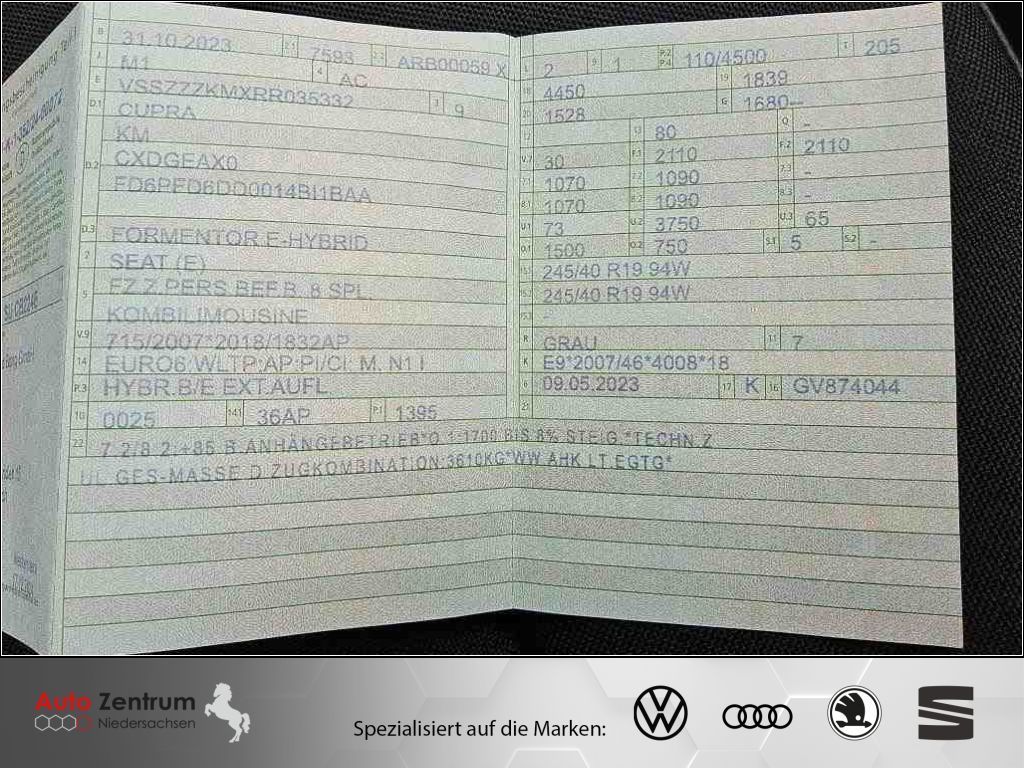 B 31.10.2023 2.1 7593 2.2 ARB00059 X
J M1 4 AC
E VSSZZZKMXRR035332 3 9
D.1 CUPRA
KM
D.2 CXDGEAX0
FD6PFD6DD0014BI1BAA
D.3 FORMENTOR E-HYBRID
2 SEAT (E)
5 FZ.Z.PERS.BEF.B. 8 SPL.
KOMBILIMOUSINE
V.9 715/2007*2018/1832AP
14 EURO6;WLTP;AP;PI/CI; M, N1 I
P.3 HYBR.B/E EXT.AUFL.
10 0025 14.1 36AP P.1 1395
22 7.2/8.2:+85 B.ANHÄNGEBETRIEB*O.1:1700 BIS 8% STEIG.*TECHN.Z
UL.GES-MASSE D.ZUGKOMBINATION:3610KG*WW.AHK LT.EGTG*
L 2 9 1 P.2 P.4 110/4500 T 205
18 4450 19 1839
20 1528 G 1680--
12 - 13 80 Q -
V.7 30 F.1 2110 F.2 2110
7.1 1070 7.2 1090 7.3 -
8.1 1070 8.2 1090 8.3 -
U.1 73 U.2 3750 U.3 65
O.1 1500 O.2 750 S.1 5 S.2 -
15.1 245/40 R19 94W
15.2 245/40 R19 94W
15.3 -
R GRAU 11 7
K E9*2007/46*4008*18
6 09.05.2023 17 K 16 GV874044
21
Auto Zentrum
Niedersachsen
Spezialisiert auf die Marken: